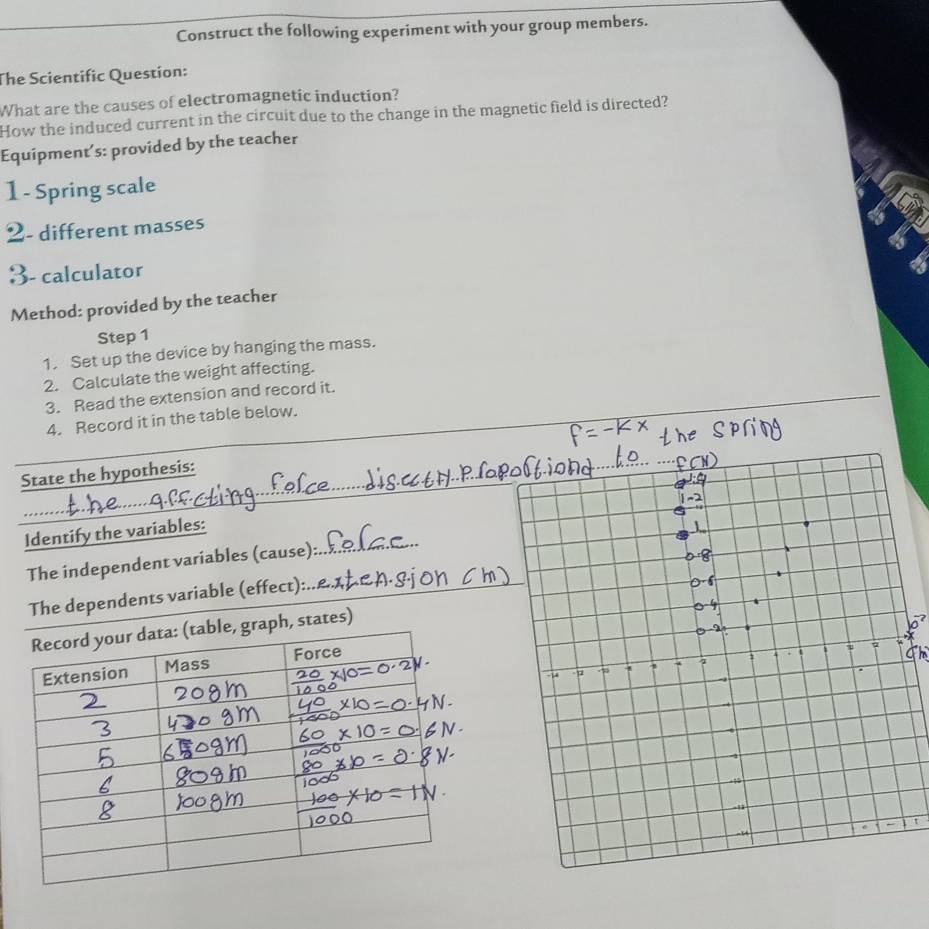 Construct the following experiment with your group members.
The Scientific Question:
What are the causes of electromagnetic induction?
How the induced current in the circuit due to the change in the magnetic field is directed?
Equipment's: provided by the teacher
1 - Spring scale
2- different masses
3- calculator
Method: provided by the teacher
Step 1
1. Set up the device by hanging the mass.
2. Calculate the weight affecting.
3. Read the extension and record it.
4. Record it in the table below.
F = -Kx
State the hypothesis:
the affecting force directly proportiond to the spring
Identify the variables:
The independent variables (cause): force
The dependents variable (effect): extension (m)
Record your data: (table, graph, states)
Extension Mass Force
2 20gm 20/1000 ×10 = 0.2N.
3 40 gm 40/1000 ×10 = 0.4N.
5 60gm 60/1000 ×10 = 0.6N.
6 80gm 80/1000 ×10 = 0.8N.
8 100gm 100/1000 ×10 = 1N.
F(N)
1-2
1
0-8
0-6
0-4
0-2
-14 -12 -10